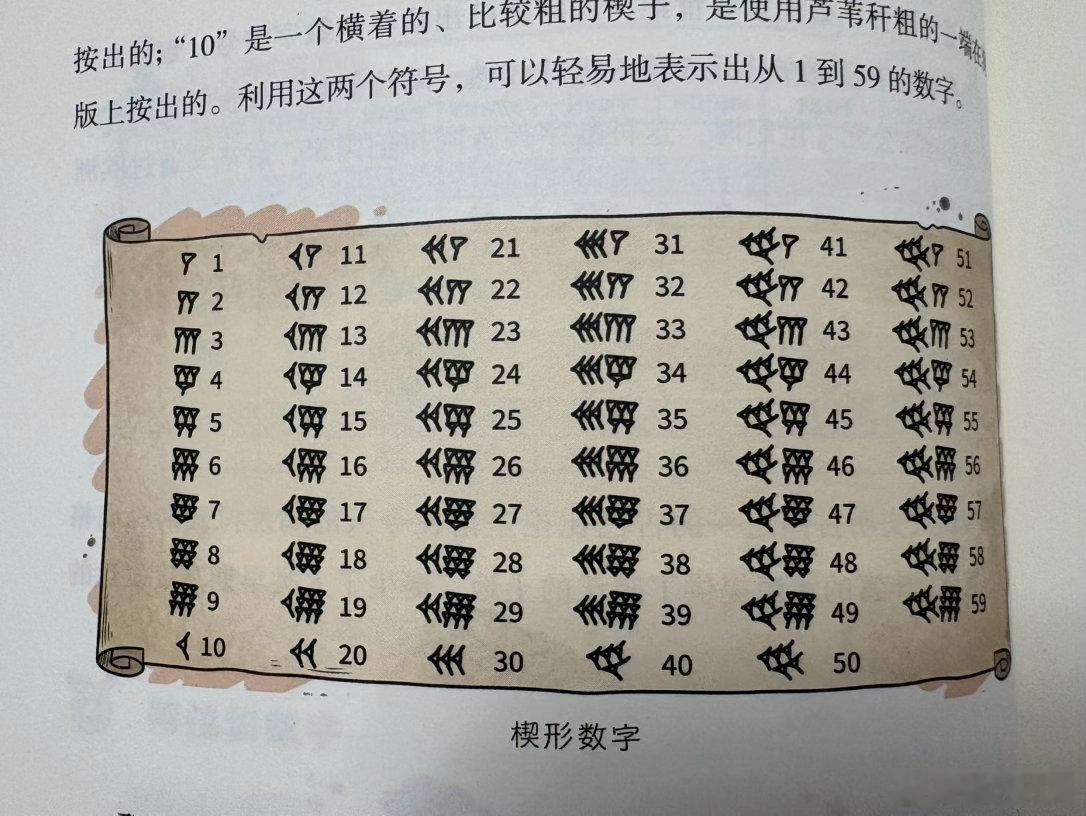 按出的；“10”是一个横着的、比较粗的楔子，是使用芦苇秆粗的一端在
版上按出的。利用这两个符号，可以轻易地表示出从 1 到 59 的数字。
1 11 21 31 41 51
2 12 22 32 42 52
3 13 23 33 43 53
4 14 24 34 44 54
5 15 25 35 45 55
6 16 26 36 46 56
7 17 27 37 47 57
8 18 28 38 48 58
9 19 29 39 49 59
10 20 30 40 50
楔形数字